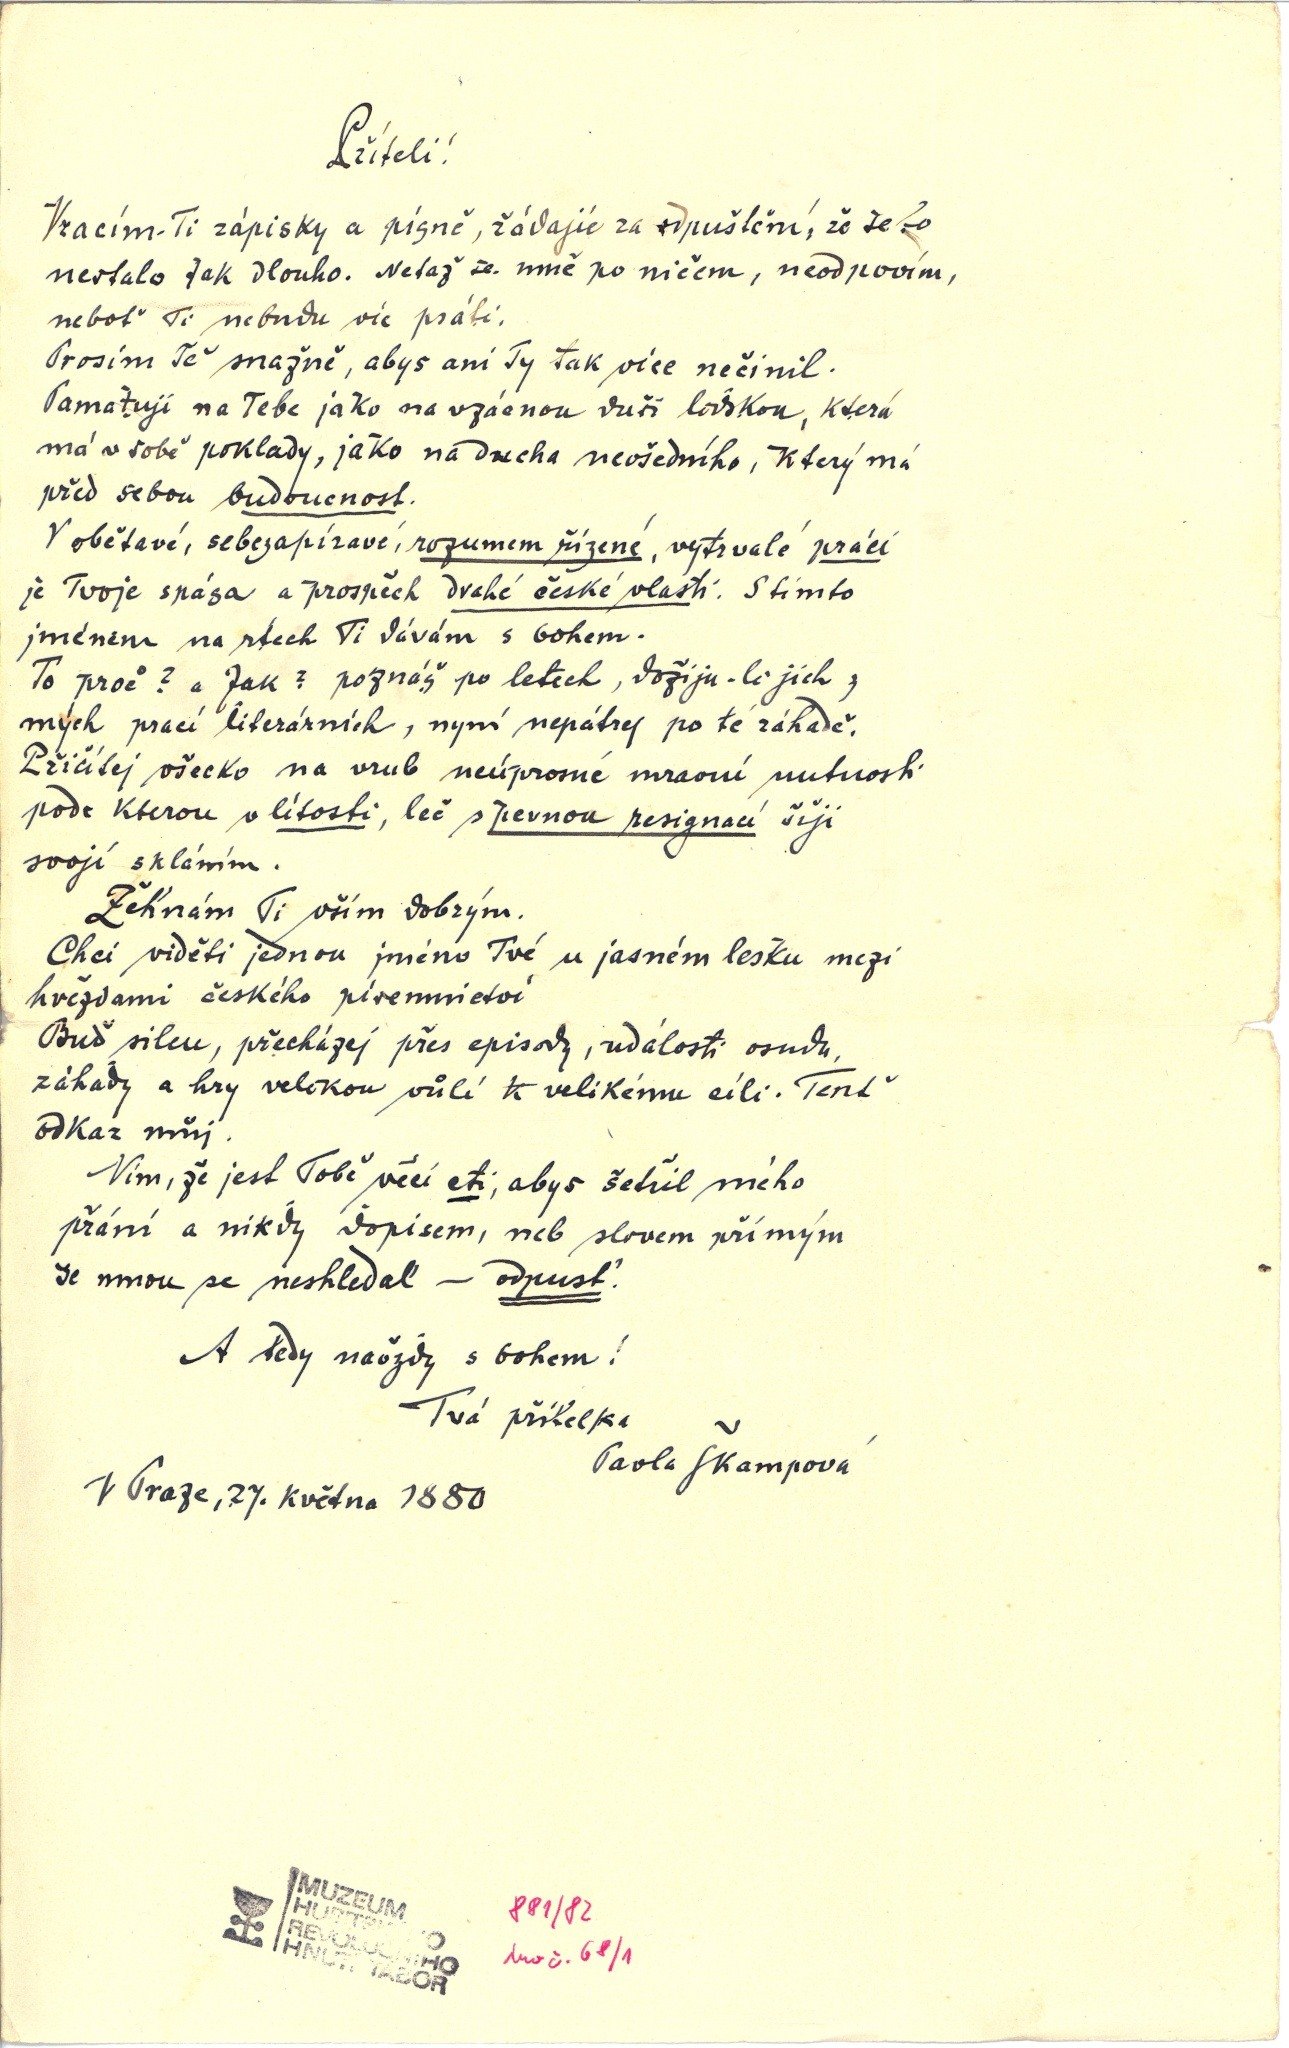 Příteli!
Vracím Ti zápisky a písně, žádajíc za odpuštění, že se to
nestalo tak dlouho. Netaž se mně po ničem, neodpovím,
neboť Ti nebudu víc psáti.
Prosím Tě snažně, abys ani Ty tak více nečinil.
Pamatuji na Tebe jako na vzácnou duši lidskou, která
má v sobě poklady, jako na ducha nevšedního, který má
před sebou budoucnost.
V obětavé, sebezapíravé, rozumem řízené, vytrvalé práci
je Tvoje spása a prospěch drahé české vlasti. S tímto
jménem na rtech Ti dávám s bohem.
To proč? a jak? poznáš po letech, dožiju-li jich z
mých prací literárních, nyní nepátrej po té záhadě.
Přičítej všecko na vrub neúprosné mravní nutnosti
pode kterou v lítosti, leč s pevnou resignací šíji
svoji skláním.
Žehnám Ti vším dobrým.
Chci viděti jednou jméno Tvé u jasném lesku mezi
hvězdami českého písemnictví
Buď silen, přecházej přes episody, události osudu,
záhady a hry velikou vůlí k velikému cíli. Tenť
odkaz můj.
Vím, že jest Tobě věcí cti, abys šetřil mého
přání a nikdy dopisem, neb slovem přímým
se mnou se neshledal — odpusť!
A tedy navždy s bohem!
Tvá přítelka
Pavla Škampová
V Praze, 27. května 1880
MUZEUM
HUSITSKÉHO
REVOLUČNÍHO
HNUTÍ TÁBOR
881/82
inv č. 68/1